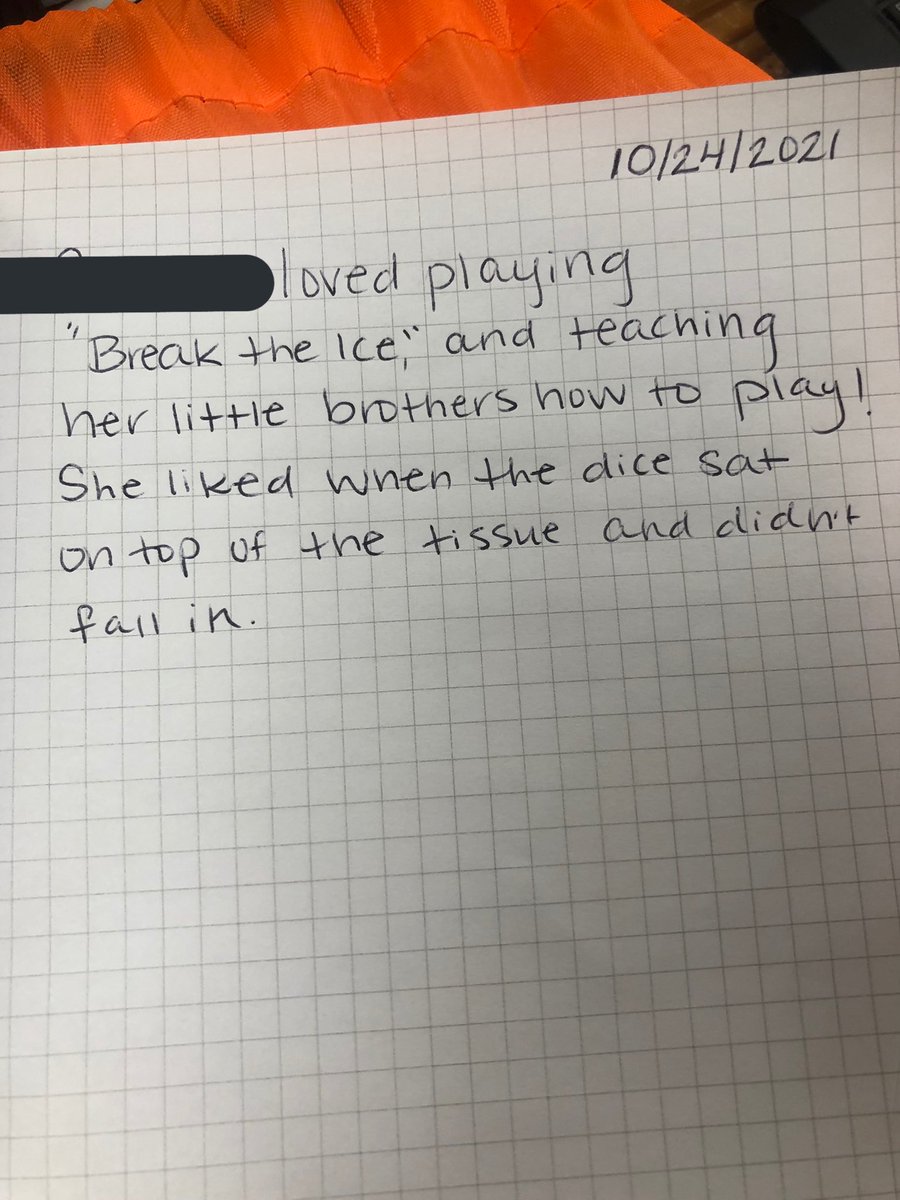 10/24/2021
loved playing
"Break the Ice," and teaching
her little brothers how to play!
She liked when the dice sat
on top of the tissue and didn't
fall in.